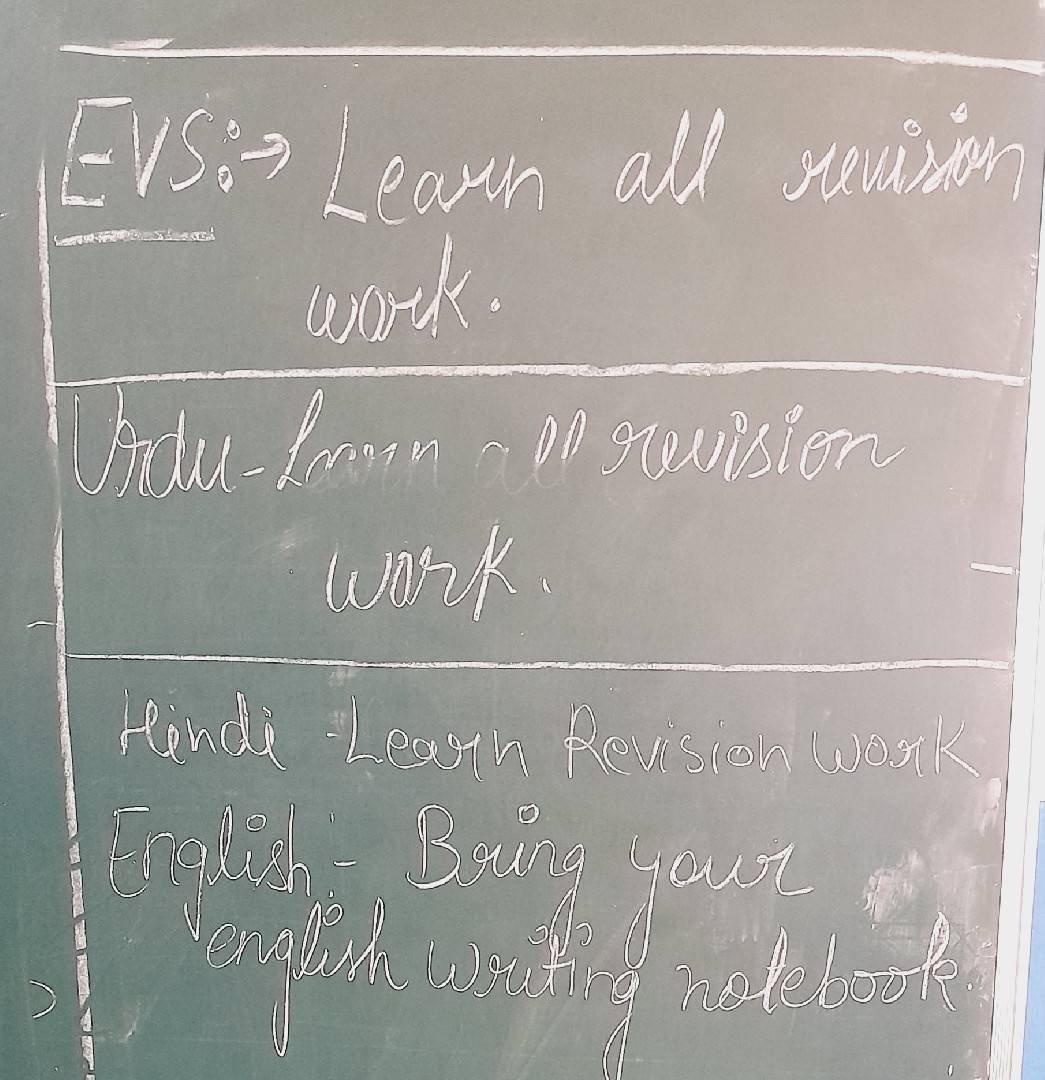 EVS:→ Learn all revision
work.
Urdu-Learn all revision
work.
Hindi -Learn Revision work
English:- Bring your
english writing notebook.